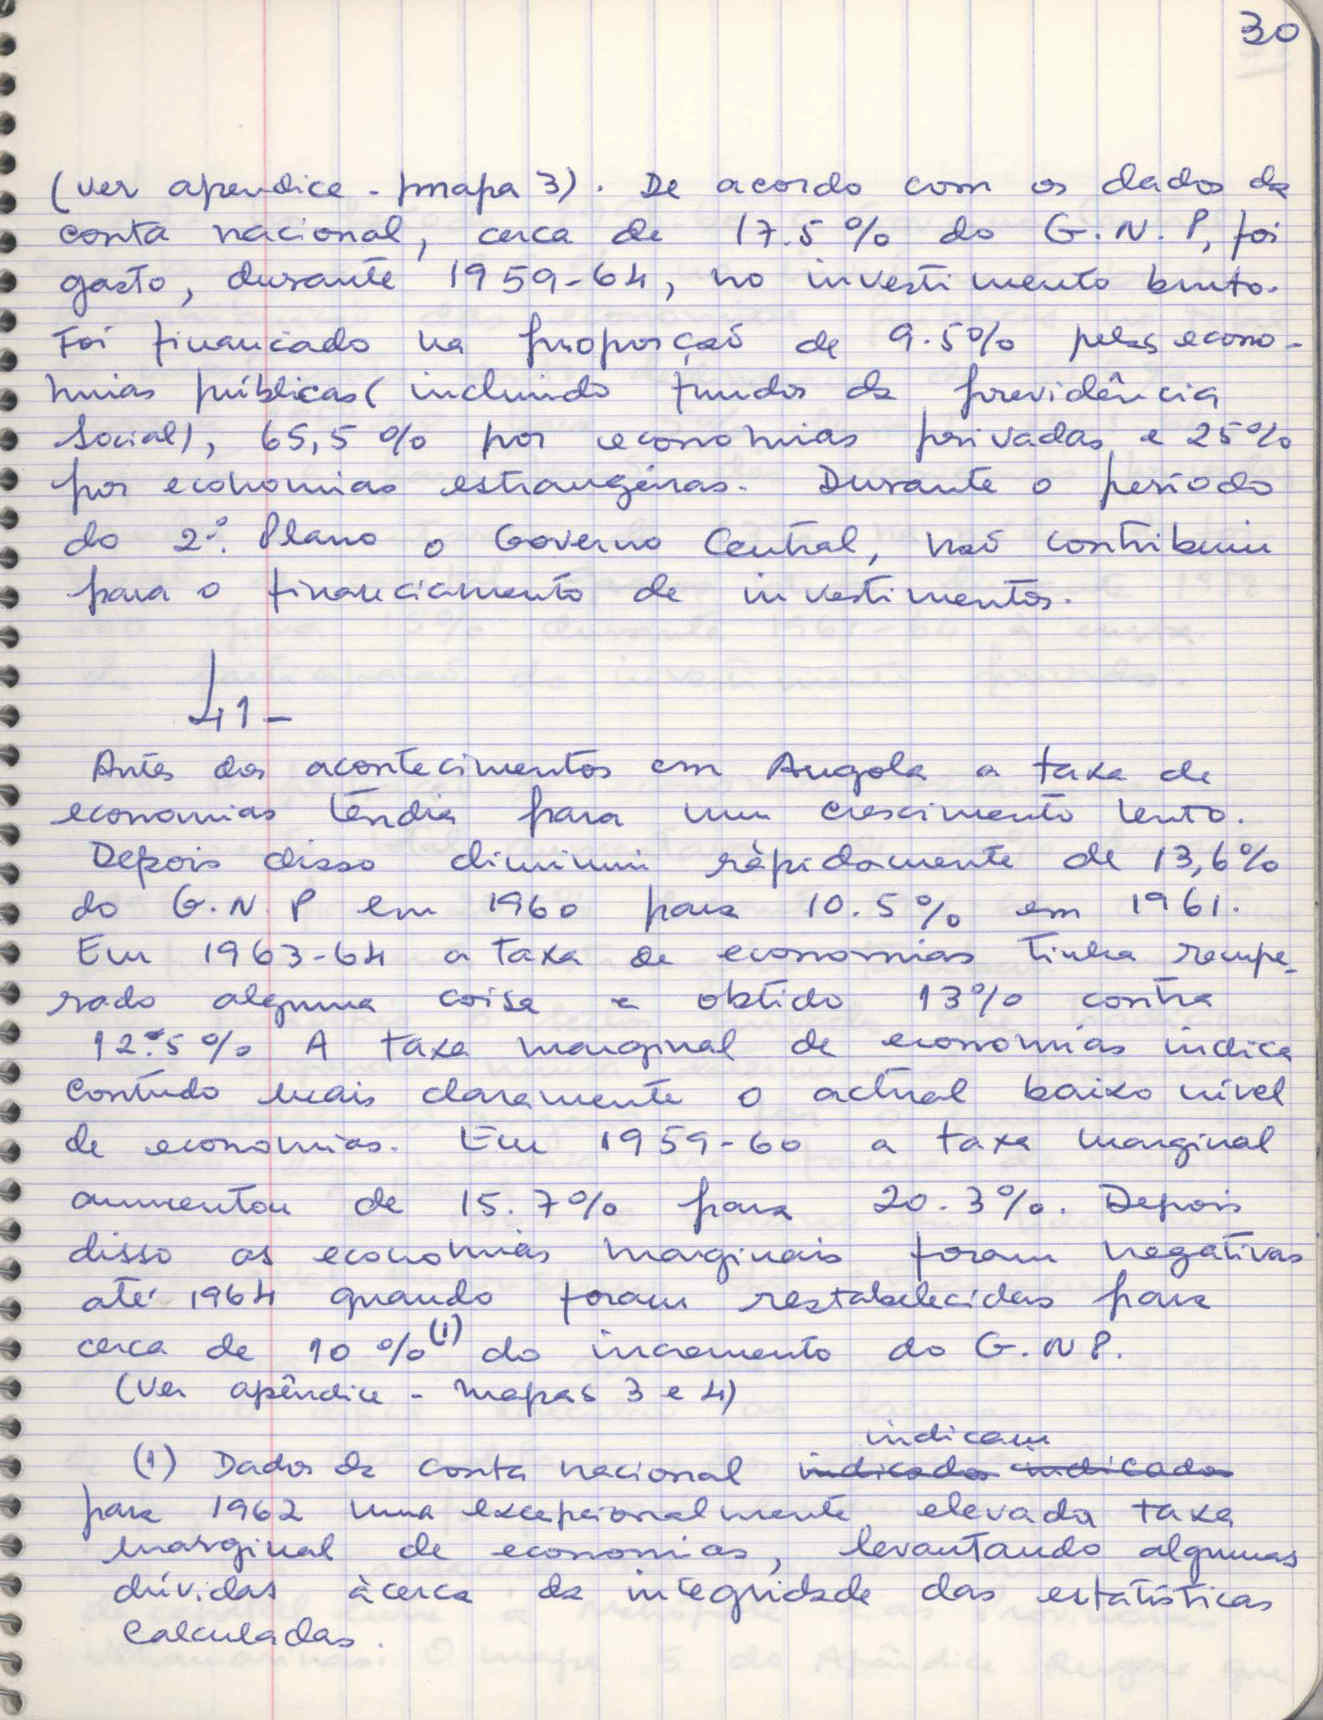 30
(ver apendice - mapa 3). De acordo com os dados da
conta nacional, cerca de 17.5% do G.N.P, foi
gasto, durante 1959-64, no investimento bruto.
Foi financiado na proporção de 9.5% pelas econo-
mias públicas (incluindo fundos da previdência
social), 65,5% por economias privadas e 25%
por economias estrangeiras. Durante o período
do 2º. Plano o Governo Central, não contribuiu
para o financiamento de investimentos.
41-
Antes dos acontecimentos em Angola a taxa de
economias tendia para um crescimento lento.
Depois disso diminuiu ràpidamente de 13,6%
do G.N.P em 1960 para 10.5% em 1961.
Em 1963-64 a taxa de economias tinha recupe-
rado alguma coisa e obtido 13% contra
12.5% A taxa marginal de economias indica
contudo mais claramente o actual baixo nível
de economias. Em 1959-60 a taxa marginal
aumentou de 15.7% para 20.3%. Depois
disso as economias marginais foram negativas
até 1964 quando foram restabelecidas para
cerca de 10%(1) do incremento do G.N.P.
(Ver apêndice - mapas 3 e 4)
indicam
(1) Dados da conta nacional indicados indicados
para 1962 uma excepcionalmente elevada taxa
marginal de economias, levantando algumas
dúvidas àcerca da integridade das estatísticas
calculadas.